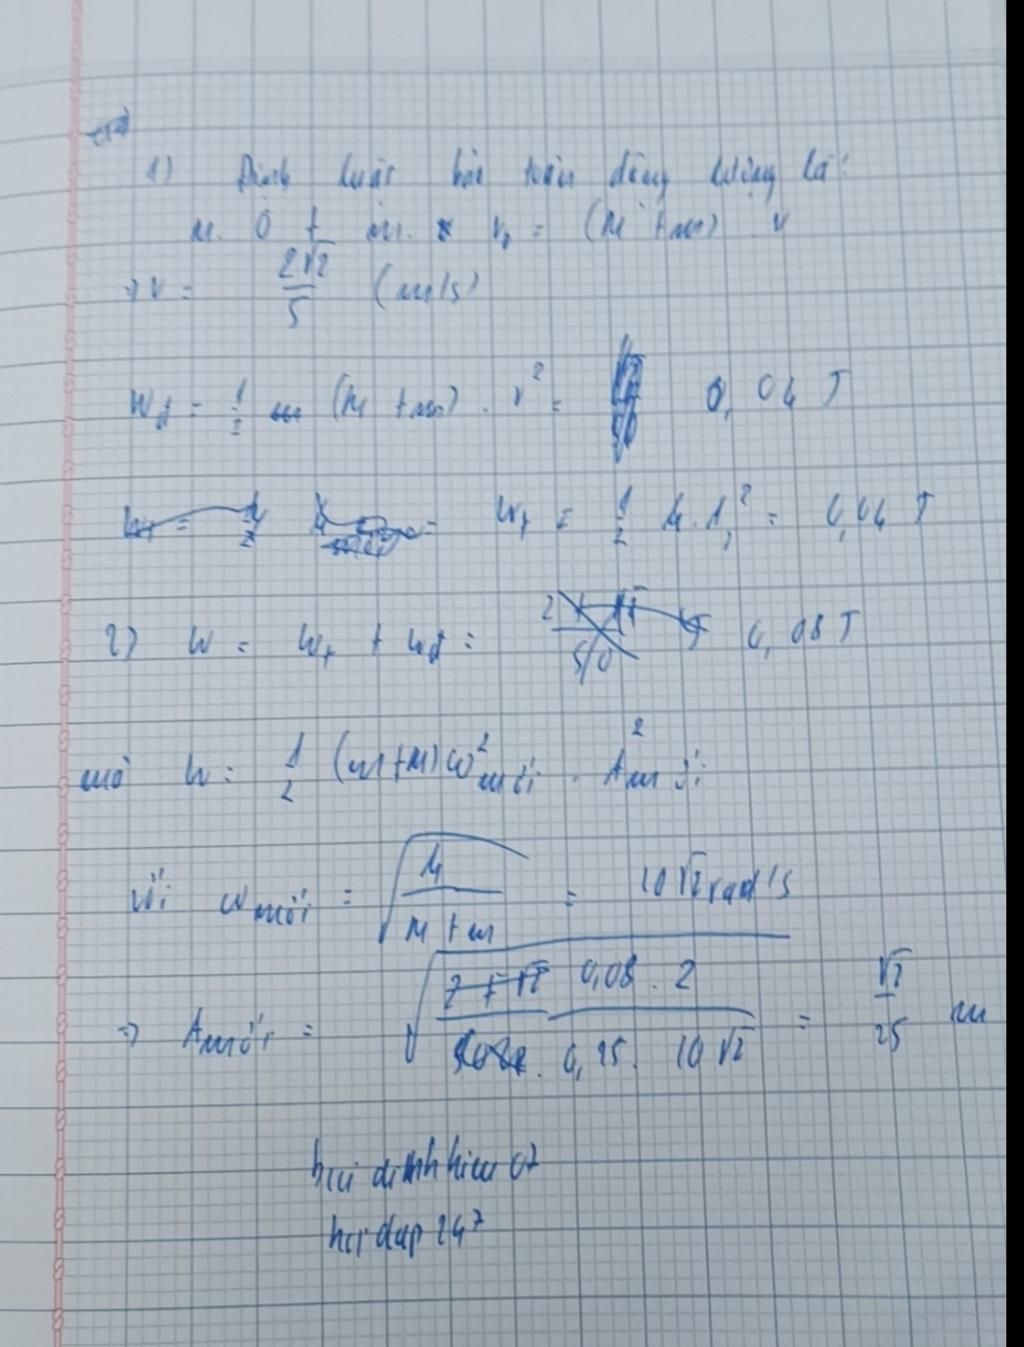 1) Định luật bảo toàn động lượng là:
M. 0 + m. v₀ = (M + m) . v
⇒ v = 2√2/5 (m/s)
Wđ = 1/2 (M + m) . v² = 0,04 J
Wt = 1/2 k . Δ² = 0,04 J
2) W = Wt + Wđ = 0,08 J
mà W = 1/2 (m+M) ω²mới . A²mới
Với ωmới = √(k/(M + m)) = 10√2 rad/s
⇒ Amới = √(0,08 . 2/(0,25. 10√2)) = √2/25 m
buidinhhieu07
hoidap247